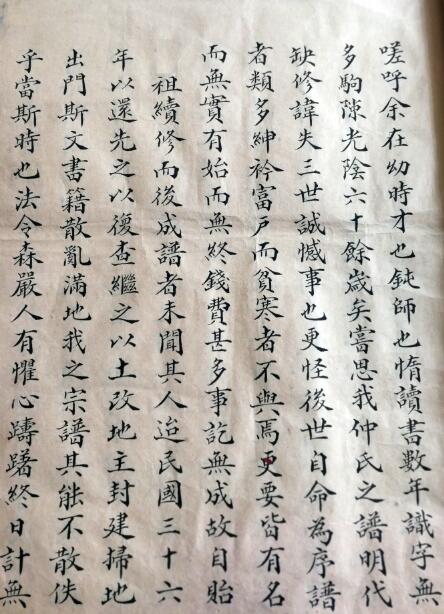 嗟呼余在幼時才也鈍師也惰讀書數年識字無
多駒隙光陰六十餘歲矣嘗思我仲氏之譜明代
缺修諱失三世誠憾事也更怪後世自命為序譜
者類多紳衿富戶而貧寒者不與焉更要皆有名
而無實有始而無終錢費甚多事訖無成故自貽
祖續修而後成譜者未聞其人迨民國三十六
年以還先之以復查繼之以土改地主封建掃地
出門斯文書籍散亂滿地我之宗譜其能不散佚
乎當斯時也法令森嚴人有懼心躊躇終日計無